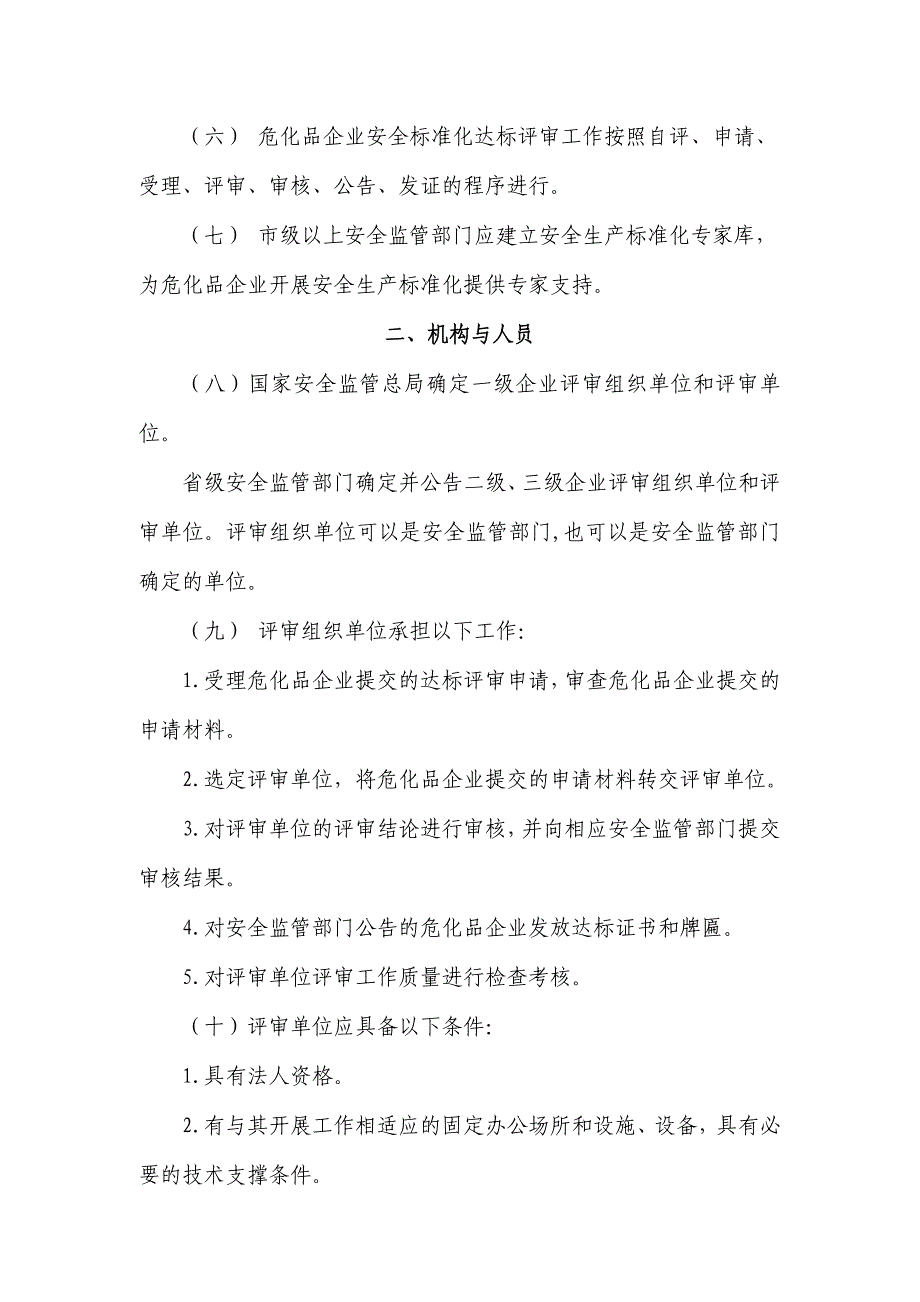 （六） 危化品企业安全标准化达标评审工作按照自评、申请、
受理、评审、审核、公告、发证的程序进行。
（七） 市级以上安全监管部门应建立安全生产标准化专家库，
为危化品企业开展安全生产标准化提供专家支持。
二、机构与人员
（八）国家安全监管总局确定一级企业评审组织单位和评审单
位。
省级安全监管部门确定并公告二级、三级企业评审组织单位和评
审单位。评审组织单位可以是安全监管部门,也可以是安全监管部门
确定的单位。
（九） 评审组织单位承担以下工作：
1.受理危化品企业提交的达标评审申请,审查危化品企业提交的
申请材料。
2.选定评审单位，将危化品企业提交的申请材料转交评审单位。
3.对评审单位的评审结论进行审核,并向相应安全监管部门提交
审核结果。
4.对安全监管部门公告的危化品企业发放达标证书和牌匾。
5.对评审单位评审工作质量进行检查考核。
（十）评审单位应具备以下条件：
1.具有法人资格。
2.有与其开展工作相适应的固定办公场所和设施、设备,具有必
要的技术支撑条件。